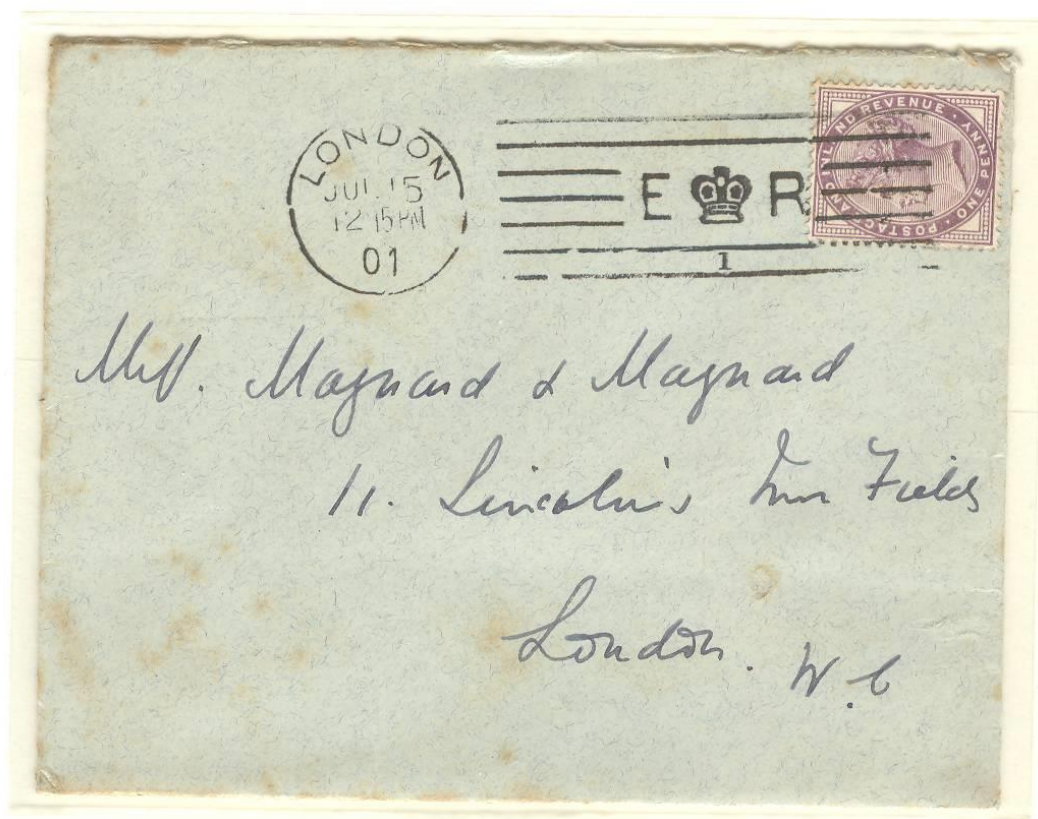 LONDON
JUL 15
12 15 PM
01
E R
1
POSTAGE AND INLAND REVENUE · ONE PENNY
Messrs. Maynard & Maynard
11. Lincoln's Inn Fields
London.
W.C